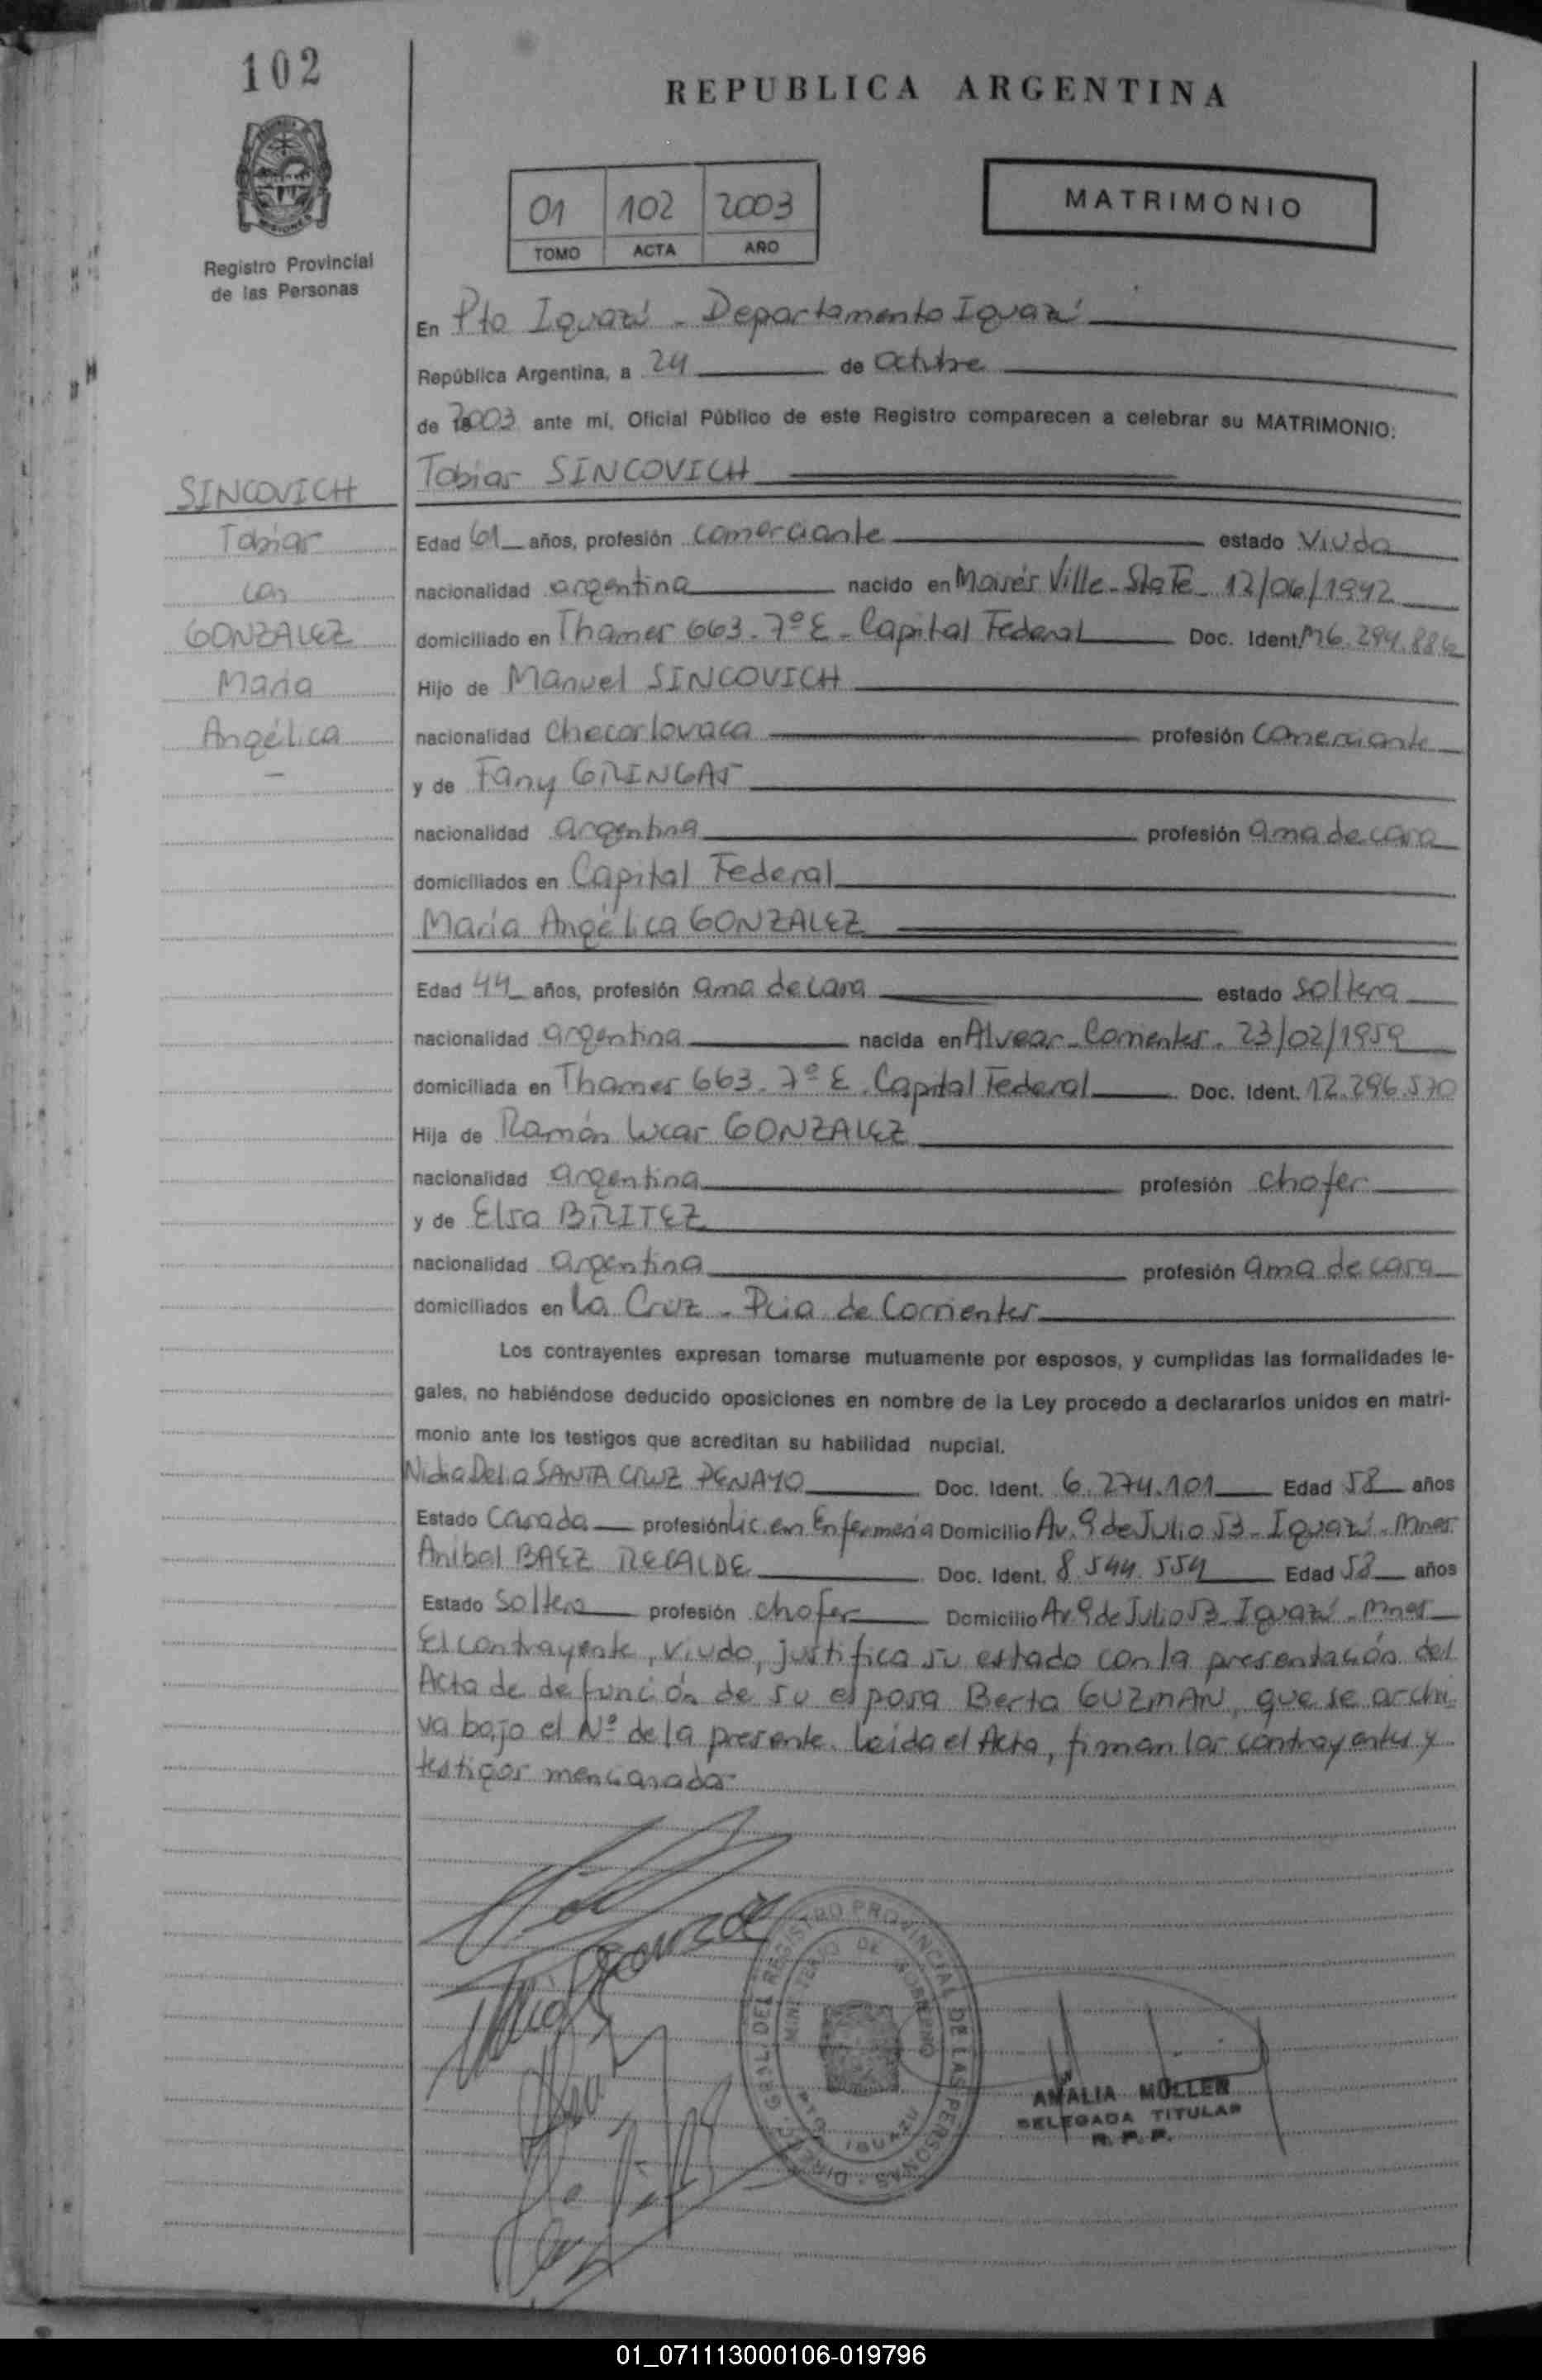 102
REPUBLICA ARGENTINA
MATRIMONIO
01 102 2003
TOMO ACTA AÑO
Registro Provincial
de las Personas
En Pto Iguazú - Departamento Iguazú
República Argentina, a 24 de Octubre
de 2003 ante mí, Oficial Público de este Registro comparecen a celebrar su MATRIMONIO:
Tobias SINCOVICH
SINCOVICH
Tobias
con
GONZALEZ
Maria
Angélica
Edad 61 años, profesión comerciante estado viudo
nacionalidad argentina nacido en Moisés Ville - Sta Fé - 12/06/1942
domiciliado en Thames 663 - 7º E - Capital Federal Doc. Ident. M6.294.886
Hijo de Manuel SINCOVICH
nacionalidad checoslovaca profesión comerciante
y de Fany GRINGAS
nacionalidad argentina profesión ama de casa
domiciliados en Capital Federal
María Angélica GONZALEZ
Edad 44 años, profesión ama de casa estado soltera
nacionalidad argentina nacida en Alvear - Corrientes - 23/02/1959
domiciliada en Thames 663 - 7º E - Capital Federal Doc. Ident. 12.296.570
Hija de Ramón GONZALEZ
nacionalidad argentina profesión chofer
y de Elsa BRITEZ
nacionalidad argentina profesión ama de casa
domiciliados en La Cruz - Pcia de Corrientes
Los contrayentes expresan tomarse mutuamente por esposos, y cumplidas las formalidades le-
gales, no habiéndose deducido oposiciones en nombre de la Ley procedo a declararlos unidos en matri-
monio ante los testigos que acreditan su habilidad nupcial.
Nidia Delia SANTA CRUZ PENAYO Doc. Ident. 6.274.101 Edad 58 años
Estado Casada profesión Lic. en Enfermería Domicilio Av. 9 de Julio 53 - Iguazú - Mnes
Anibal BAEZ RECALDE Doc. Ident. 8.544.554 Edad 58 años
Estado Soltero profesión chofer Domicilio Av 9 de Julio 53 - Iguazú - Mnes
El contrayente, viudo, justifica su estado con la presentación del
Acta de defunción de su esposa Berta GUZMAN, que se archi-
va bajo el Nº de la presente. Leída el Acta, firman los contrayentes y
testigos mencionados
DIREC. GRAL. DEL REGISTRO PROVINCIAL DE LAS PERSONAS
MINISTERIO DE GOBIERNO
PTO. IGUAZU
AMALIA MÜLLER
DELEGADA TITULAR
R. P. P.
01_071113000106-019796